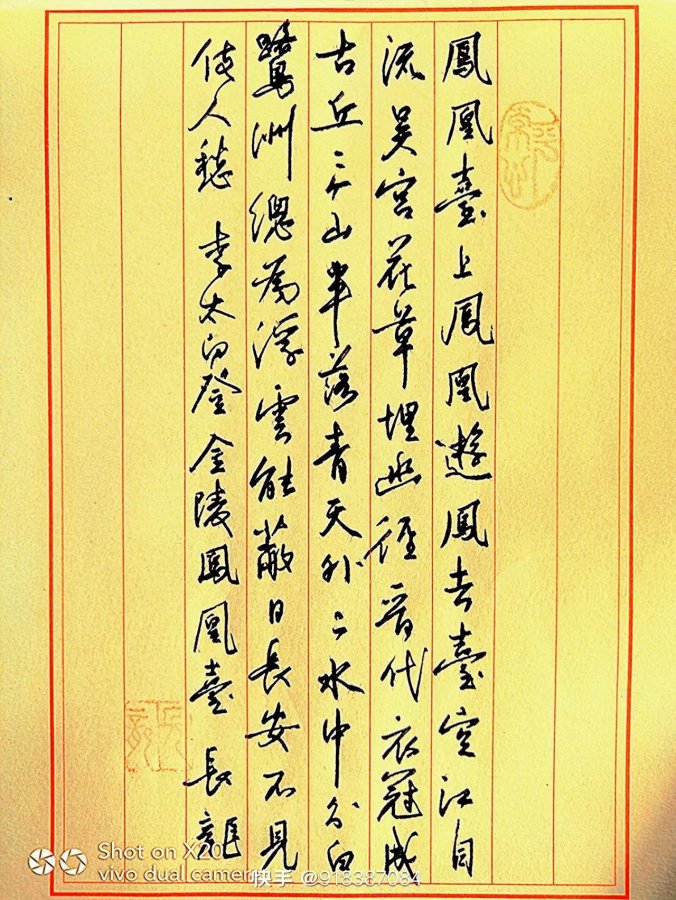 鳳凰臺上鳳凰遊鳳去臺空江自
流吴宮花草埋幽徑晉代衣冠成
古丘三山半落青天外二水中分白
鷺洲總為浮雲能蔽日長安不見
使人愁 李太白登金陵鳳凰臺 長龍
Shot on X20
vivo dual camera
快手 @918387084